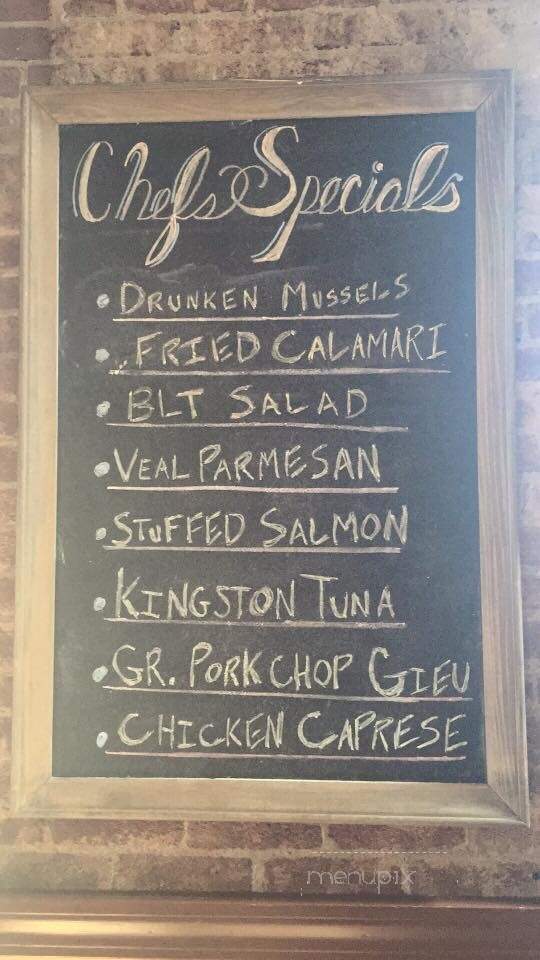 Chefs Specials
• DRUNKEN MUSSELS
• FRIED CALAMARI
• BLT SALAD
• VEAL PARMESAN
• STUFFED SALMON
• KINGSTON TUNA
• GR. PORK CHOP GIEU
• CHICKEN CAPRESE
menupix